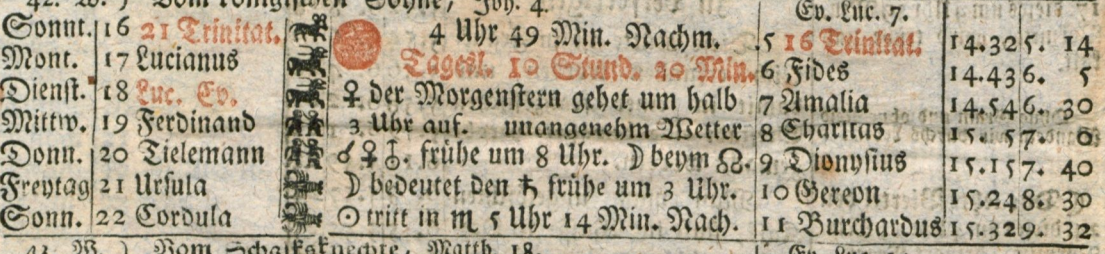 42. W. ) Vom königischen Sohne, Joh. 4. Ev. Luc. 7.
Sonnt. 16 21 Trinitat. 4 Uhr 49 Min. Nachm. 5 16 Trinitat. 14.32 5. 14
Mont. 17 Lucianus Tagesl. 10 Stund. 20 Min. 6 Fides 14.43 6. 5
Dienst. 18 Luc. Ev. ♀ der Morgenstern gehet um halb 7 Amalia 14.54 6. 30
Mittw. 19 Ferdinand 3 Uhr auf. unangenehm Wetter 8 Charitas 15. 5 7. 0
Donn. 20 Tielemann ☌ ♀ ♁. frühe um 8 Uhr. ☽ beym ☊. 9 Dionysius 15.15 7. 40
Freytag 21 Ursula ☽ bedeutet den ♄ frühe um 3 Uhr. 10 Gereon 15.24 8. 30
Sonn. 22 Cordula ☉ tritt in ♏ 5 Uhr 14 Min. Nach. 11 Burchardus 15.32 9. 32
43. W. ) Vom Schalksknechte, Matth. 18.